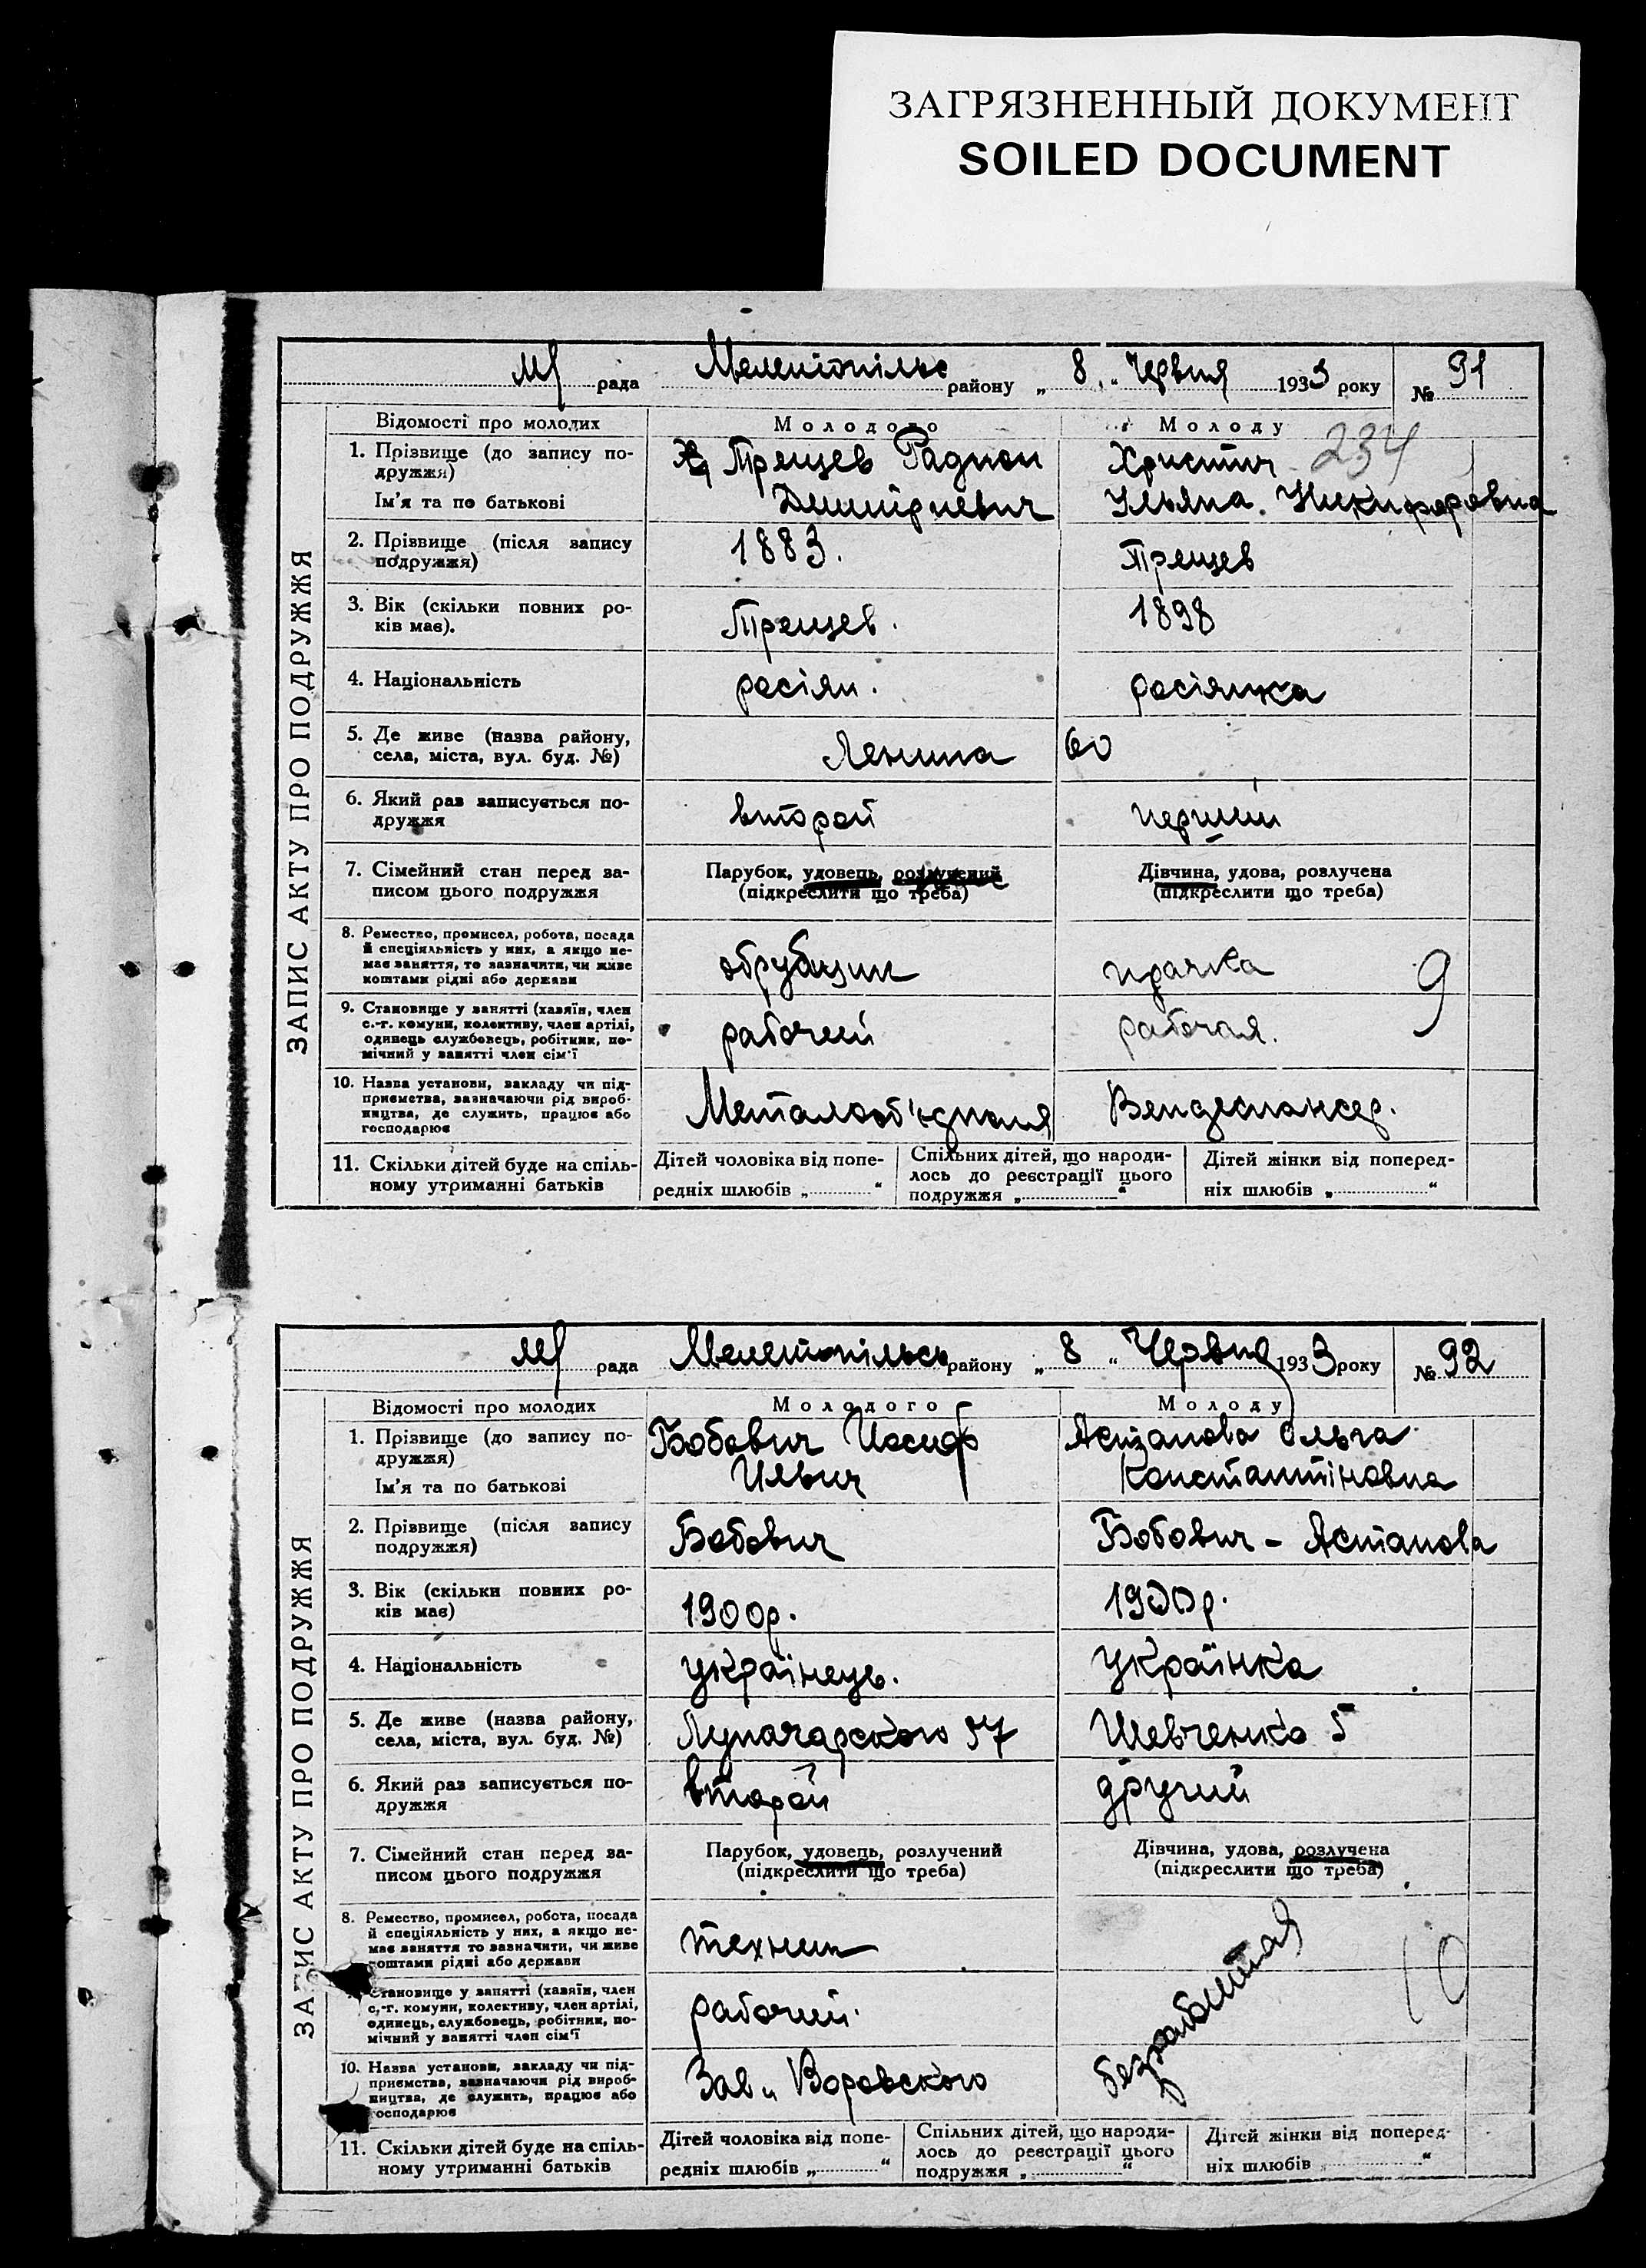 ЗАГРЯЗНЕННЫЙ ДОКУМЕНТ
SOILED DOCUMENT
рада Мелитопільс району „ 8 " Червня 1933 року № 91
Відомості про молодих Молодого Молоду
234
ЗАПИС АКТУ ПРО ПОДРУЖЖЯ
1. Прізвище (до запису подружжя) Трещев Радион Христич
Ім'я та по батькові Дмитриевич Ульяна. Никифоровна
2. Прізвище (після запису 1883. Трещев
подружжя)
3. Вік (скільки повних ро- Трещев. 1898
ків має).
4. Національність росіян. росіянка
5. Де живе (назва району, Ленина 60
села, міста, вул. буд. №)
6. Який раз записується по- второй перший
дружжя
7. Сімейний стан перед за- Парубок, удовець, розлучений Дівчина, удова, розлучена
писом цього подружжя (підкреслити що треба) (підкреслити що треба)
8. Ремество, промисел, робота, посада
й спеціяльність у них, а якщо не- обрубщик прачка 9
має заняття, то зазначити, чи живе
коштами рідні або держави
9. Становище у занятті (хазяїн, член
с.-г. комуни, колективу, член артілі, рабочий рабочая.
одинець службовець, робітник, по-
мічний у занятті член сім'ї
10. Назва установи, закладу чи під-
приємства, зазначаючи рід вироб- Вендеспансер.
ництва, де служить, працює або
господарює
11. Скільки дітей буде на спіль- Дітей чоловіка від попе- Спільних дітей, що народи- Дітей жінки від поперед-
ному утриманні батьків редніх шлюбів „ " лось до реєстрації цього ніх шлюбів „ "
подружжя „ "
рада Мелитопільськ району „ 8 " Червня 1933 року № 92
Відомості про молодих Молодого Молоду
ЗАПИС АКТУ ПРО ПОДРУЖЖЯ
1. Прізвище (до запису по- Бобович Иосиф Астанова Ольга
дружжя)
Ім'я та по батькові Ильич Константіновна
2. Прізвище (після запису Бобович Бобович - Астанова
подружжя)
3. Вік (скільки повних ро- 1900р. 1900р.
ків має)
4. Національність українець. українка
5. Де живе (назва району, Луначарского 57 Шевченко 5
села, міста, вул. буд. №)
6. Який раз записується по- второй другий
дружжя
7. Сімейний стан перед за- Парубок, удовець, розлучений Дівчина, удова, розлучена
писом цього подружжя (підкреслити що треба) (підкреслити що треба)
8. Ремество, промисел, робота, посада
й спеціяльність у них, а якщо не- техник безработная 10
має заняття то зазначити, чи живе
коштами рідні або держави
Становище у занятті (хазяїн, член
с,-г. комуни, колективу, член артілі, рабочий.
одинець, службовець, робітник, по-
мічний у занятті член сім'ї
10. Назва установи, закладу чи під-
приємства, зазначаючи рід вироб- Зав. Воровского
ництва, де служить, працює або
господарює
11. Скільки дітей буде на спіль- Дітей чоловіка від попе- Спільних дітей, що народи- Дітей жінки від поперед-
ному утриманні батьків редніх шлюбів „ " лось до реєстрації цього ніх шлюбів "
подружжя „ "